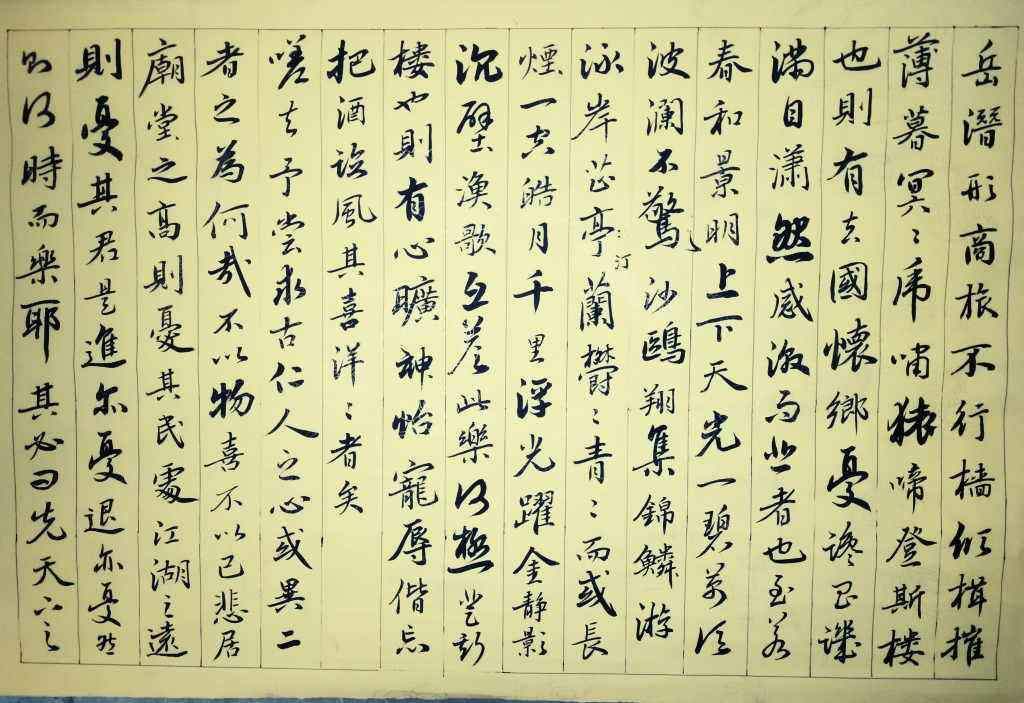 岳潛形商旅不行檣傾楫摧
薄暮冥〻虎嘯猿啼登斯樓
也則有去國懷鄉憂讒畏譏
滿目瀟然感激而悲者也至若
春和景明上下天光一碧萬頃
波瀾不驚沙鷗翔集錦鱗游
泳岸芷亭〻汀蘭欝〻青〻而或長
煙一空皓月千里浮光躍金静影
沉壁漁歌互答此樂何極登斯
樓也則有心曠神怡寵辱偕忘
把酒臨風其喜洋〻者矣
嗟夫予嘗求古仁人之心或異二
者之為何哉不以物喜不以己悲居
廟堂之高則憂其民處江湖之遠
則憂其君是進亦憂退亦憂然
則何時而樂耶其必曰先天下之